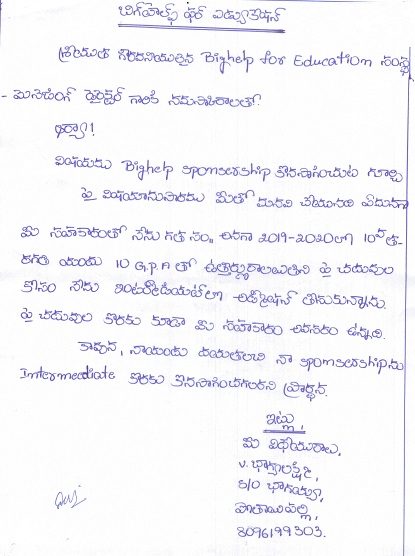 బిగ్‌హెల్ప్ ఫర్ ఎడ్యుకేషన్
శ్రీయుత గౌరవనీయులైన Bighelp for Education సంస్థ
- మేనేజింగ్ డైరెక్టర్ గారికి నమస్కారాలతో.
ఆర్యా!
విషయము Bighelp sponsership కొనసాగించుట గూర్చి
పై విషయానుసారము మీతో మనవి చేయునది ఏమనగా
మీ సహకారంతో నేను గత సం,, అనగా 2019-2020లో 10వ త-
రగతి యందు 10 G.P.A తో ఉత్తీర్ణురాలయితిని పై చదువుల
కోసం నేను ఇంటర్మీడియట్‌లో అడ్మిషన్ తీసుకున్నాను.
పై చదువుల కొరకు కూడా మీ సహకారం అవసరం ఉన్నది.
కావున, నాయందు దయతలచి నా sponsership ను
Intermediate కొరకు కొనసాగించగలరని ప్రార్థన.
ఇట్లు,
మీ విధేయురాలు,
V. భాగ్యలక్ష్మి,
S/O భాగయ్య,
పోతాయిపల్లి,
8096199303.